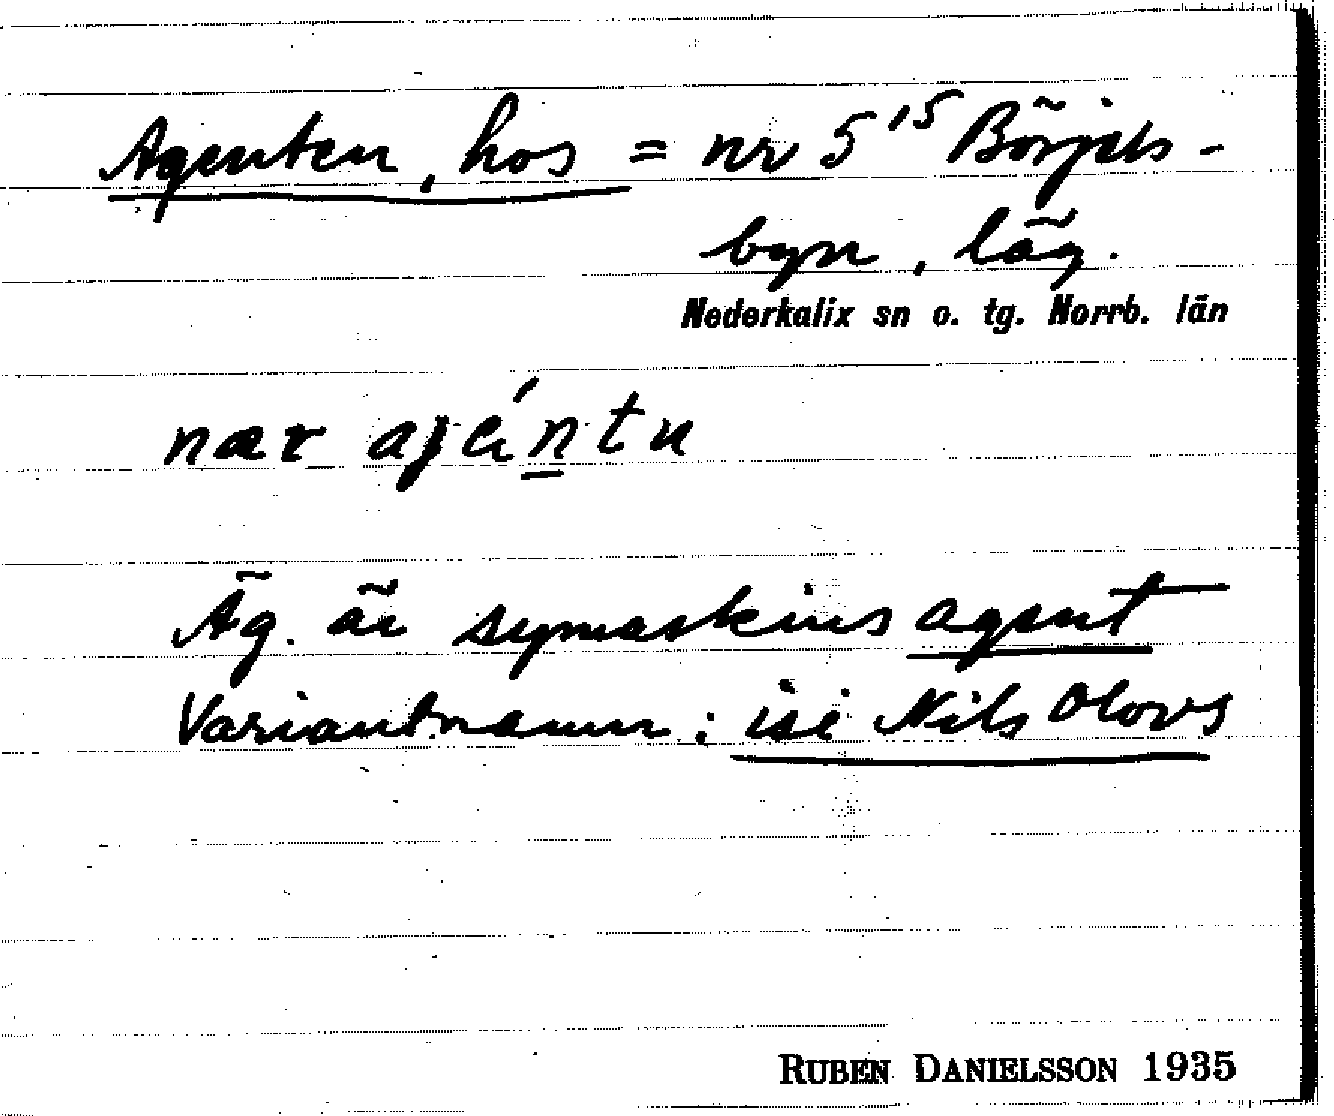 Agenten, hos = nr 5¹⁵ Börjels-
byn, läg.
Nederkalix sn o. tg. Norrb. län
nær ajéntu
Äg. är symaskinsagent
Variantnamn: isi Nils Olovs
RUBEN DANIELSSON 1935